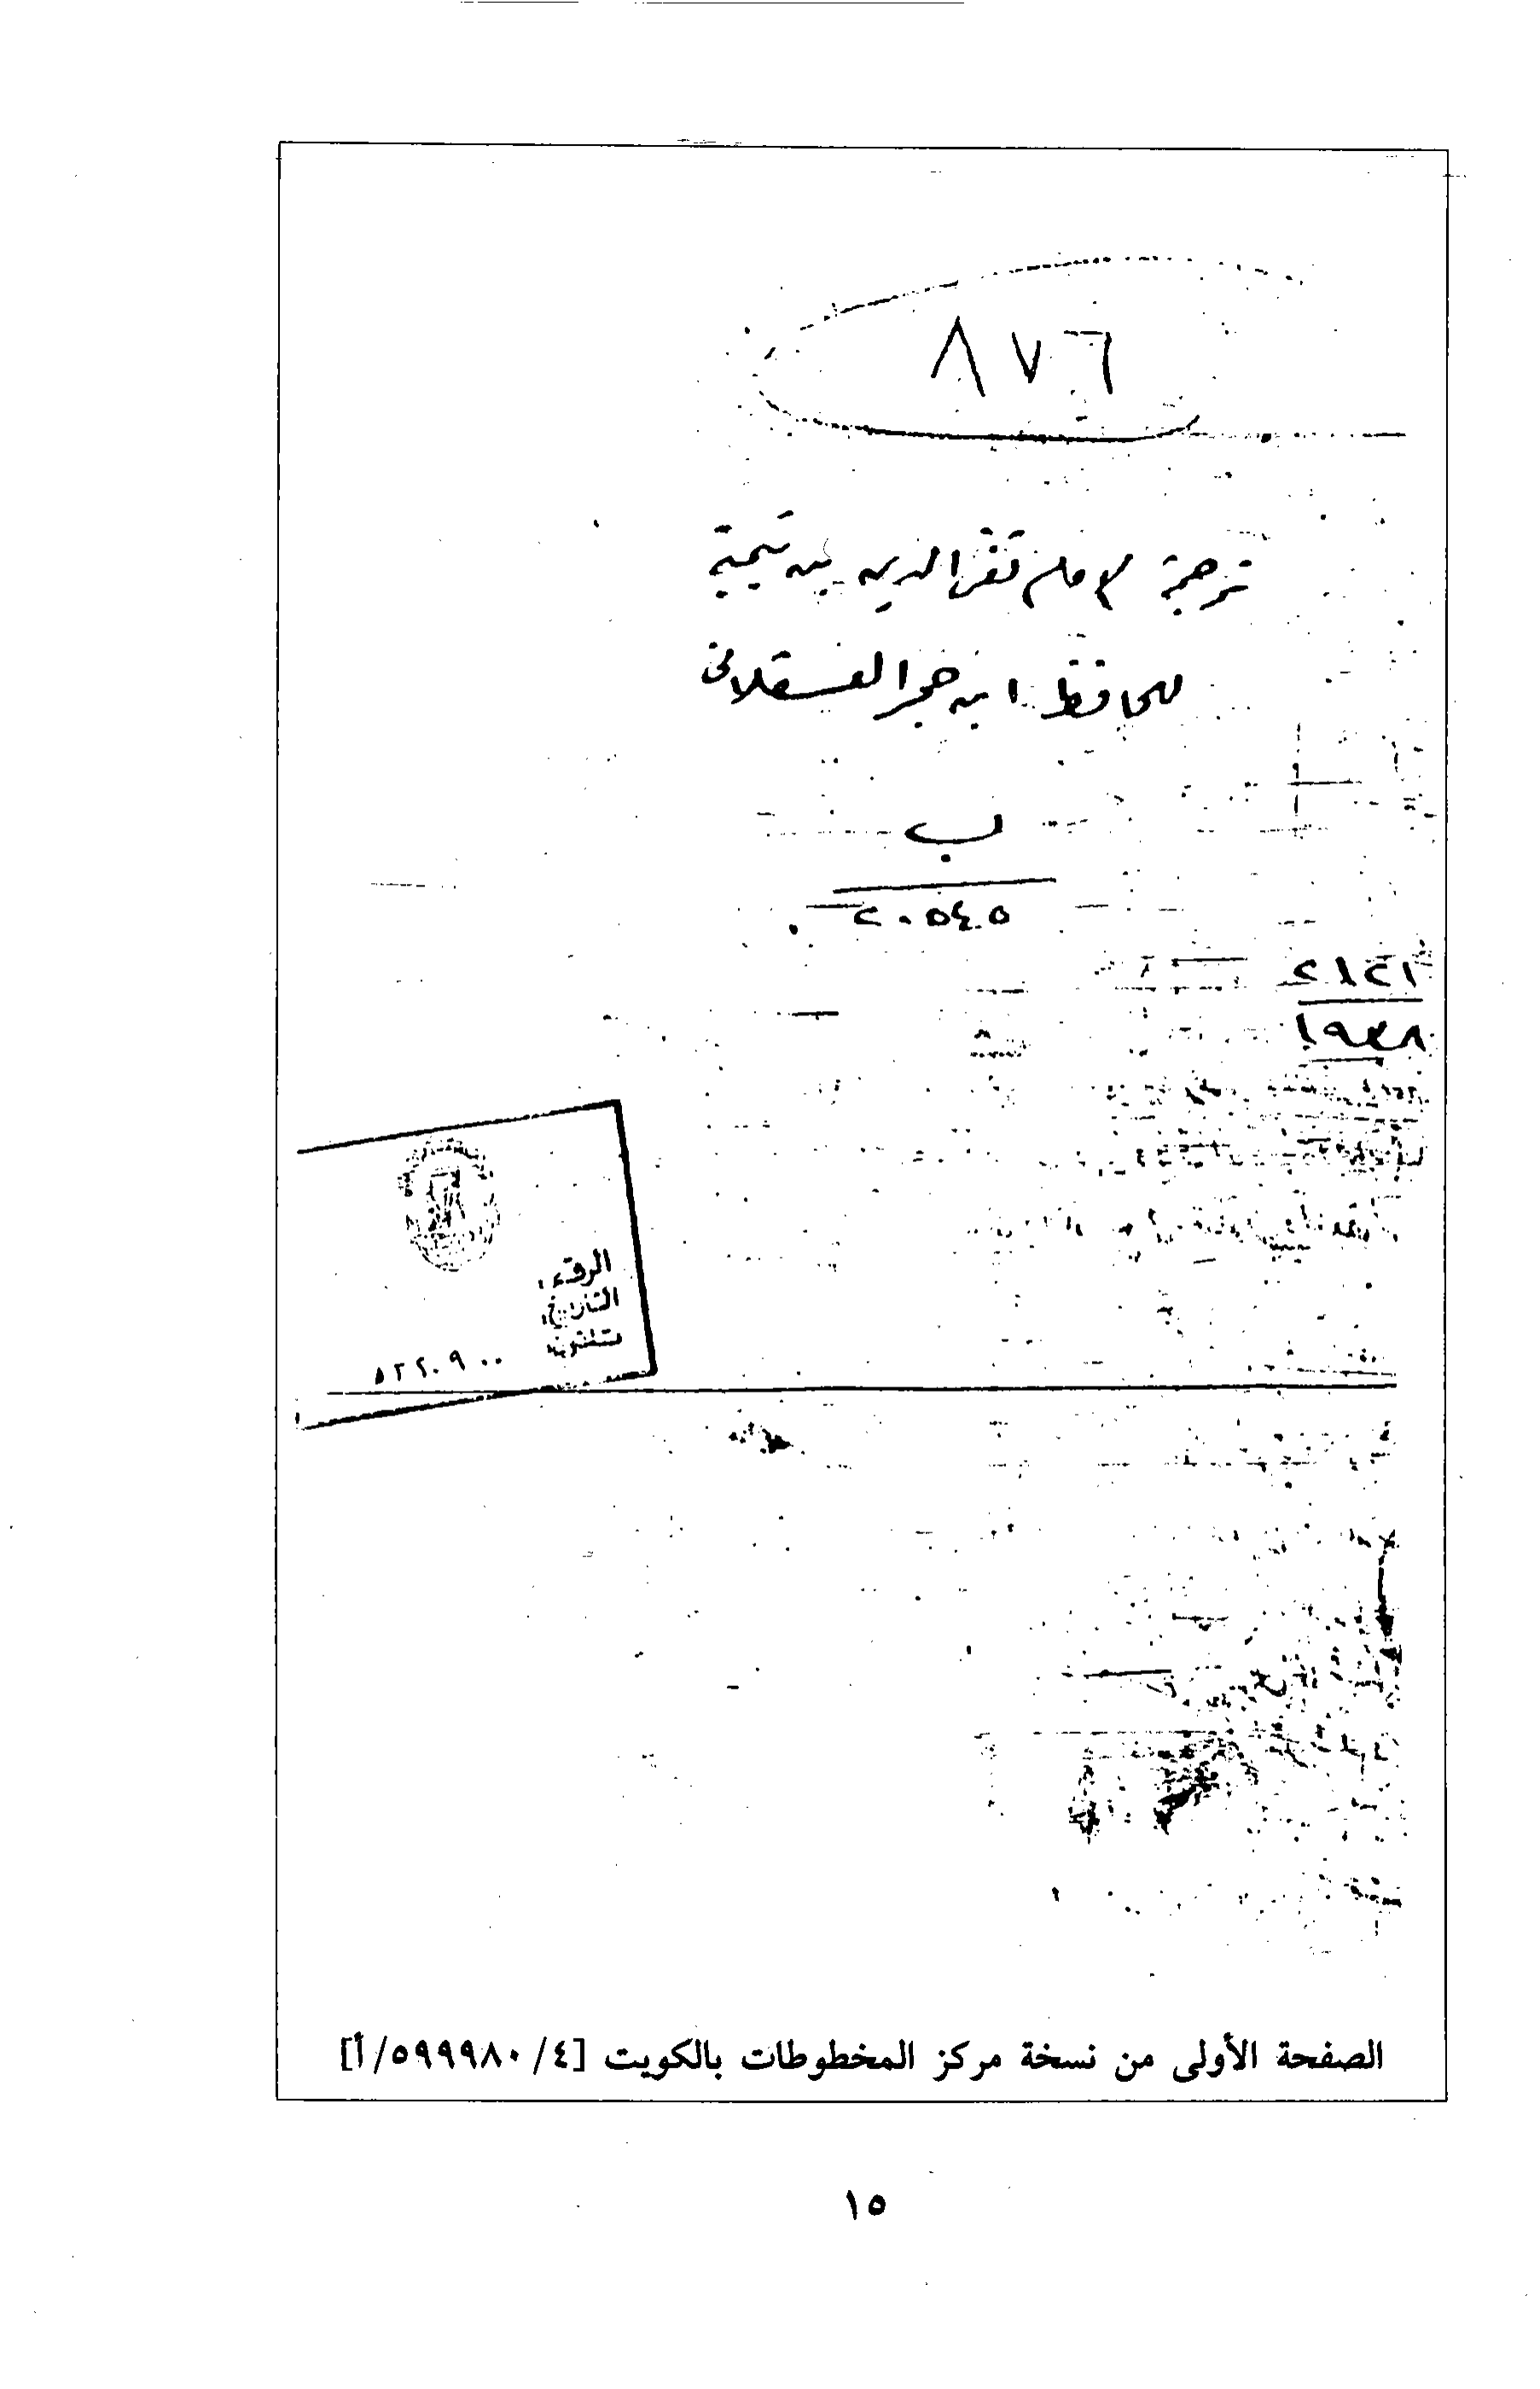 ٨٧٦
ترجمة الامام تقى الدين بن تيمية
للحافظ ابن حجر العسقلانى
ب
٢٠٥٤٥
٢٨٢١
١٩٣٨
الرقم :
التاريخ :
تلفون : ٥٢٢٠٩٠٠
الصفحة الأولى من نسخة مركز المخطوطات بالكويت [٥٩٩٩٨٠/٤/أ]
١٥